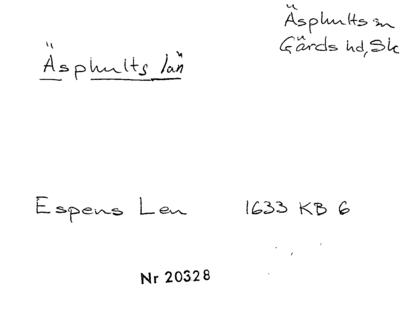 Äsphults sn
Gärds hd, Sk
Äsphults län
Espens Len 1633 KB 6
Nr 20328